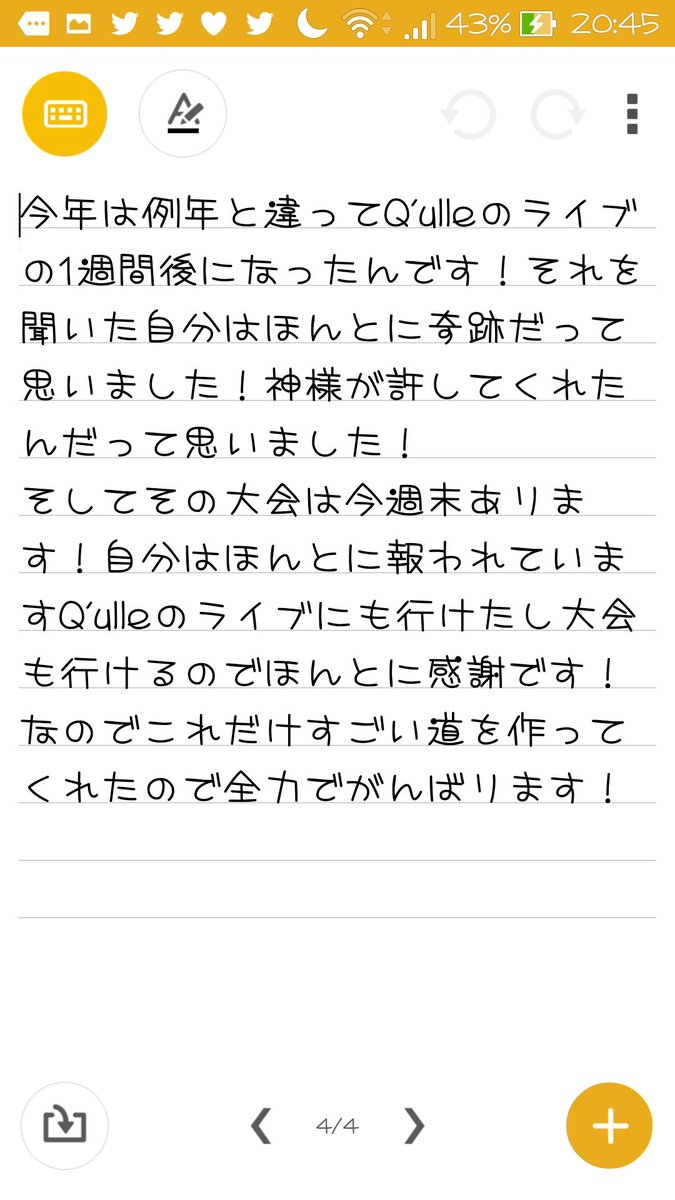 43% 20:45
今年は例年と違ってQ'ulleのライブ
の1週間後になったんです！それを
聞いた自分はほんとに奇跡だって
思いました！神様が許してくれた
んだって思いました！
そしてその大会は今週末ありま
す！自分はほんとに報われていま
すQ'ulleのライブにも行けたし大会
も行けるのでほんとに感謝です！
なのでこれだけすごい道を作って
くれたので全力でがんばります！
4/4